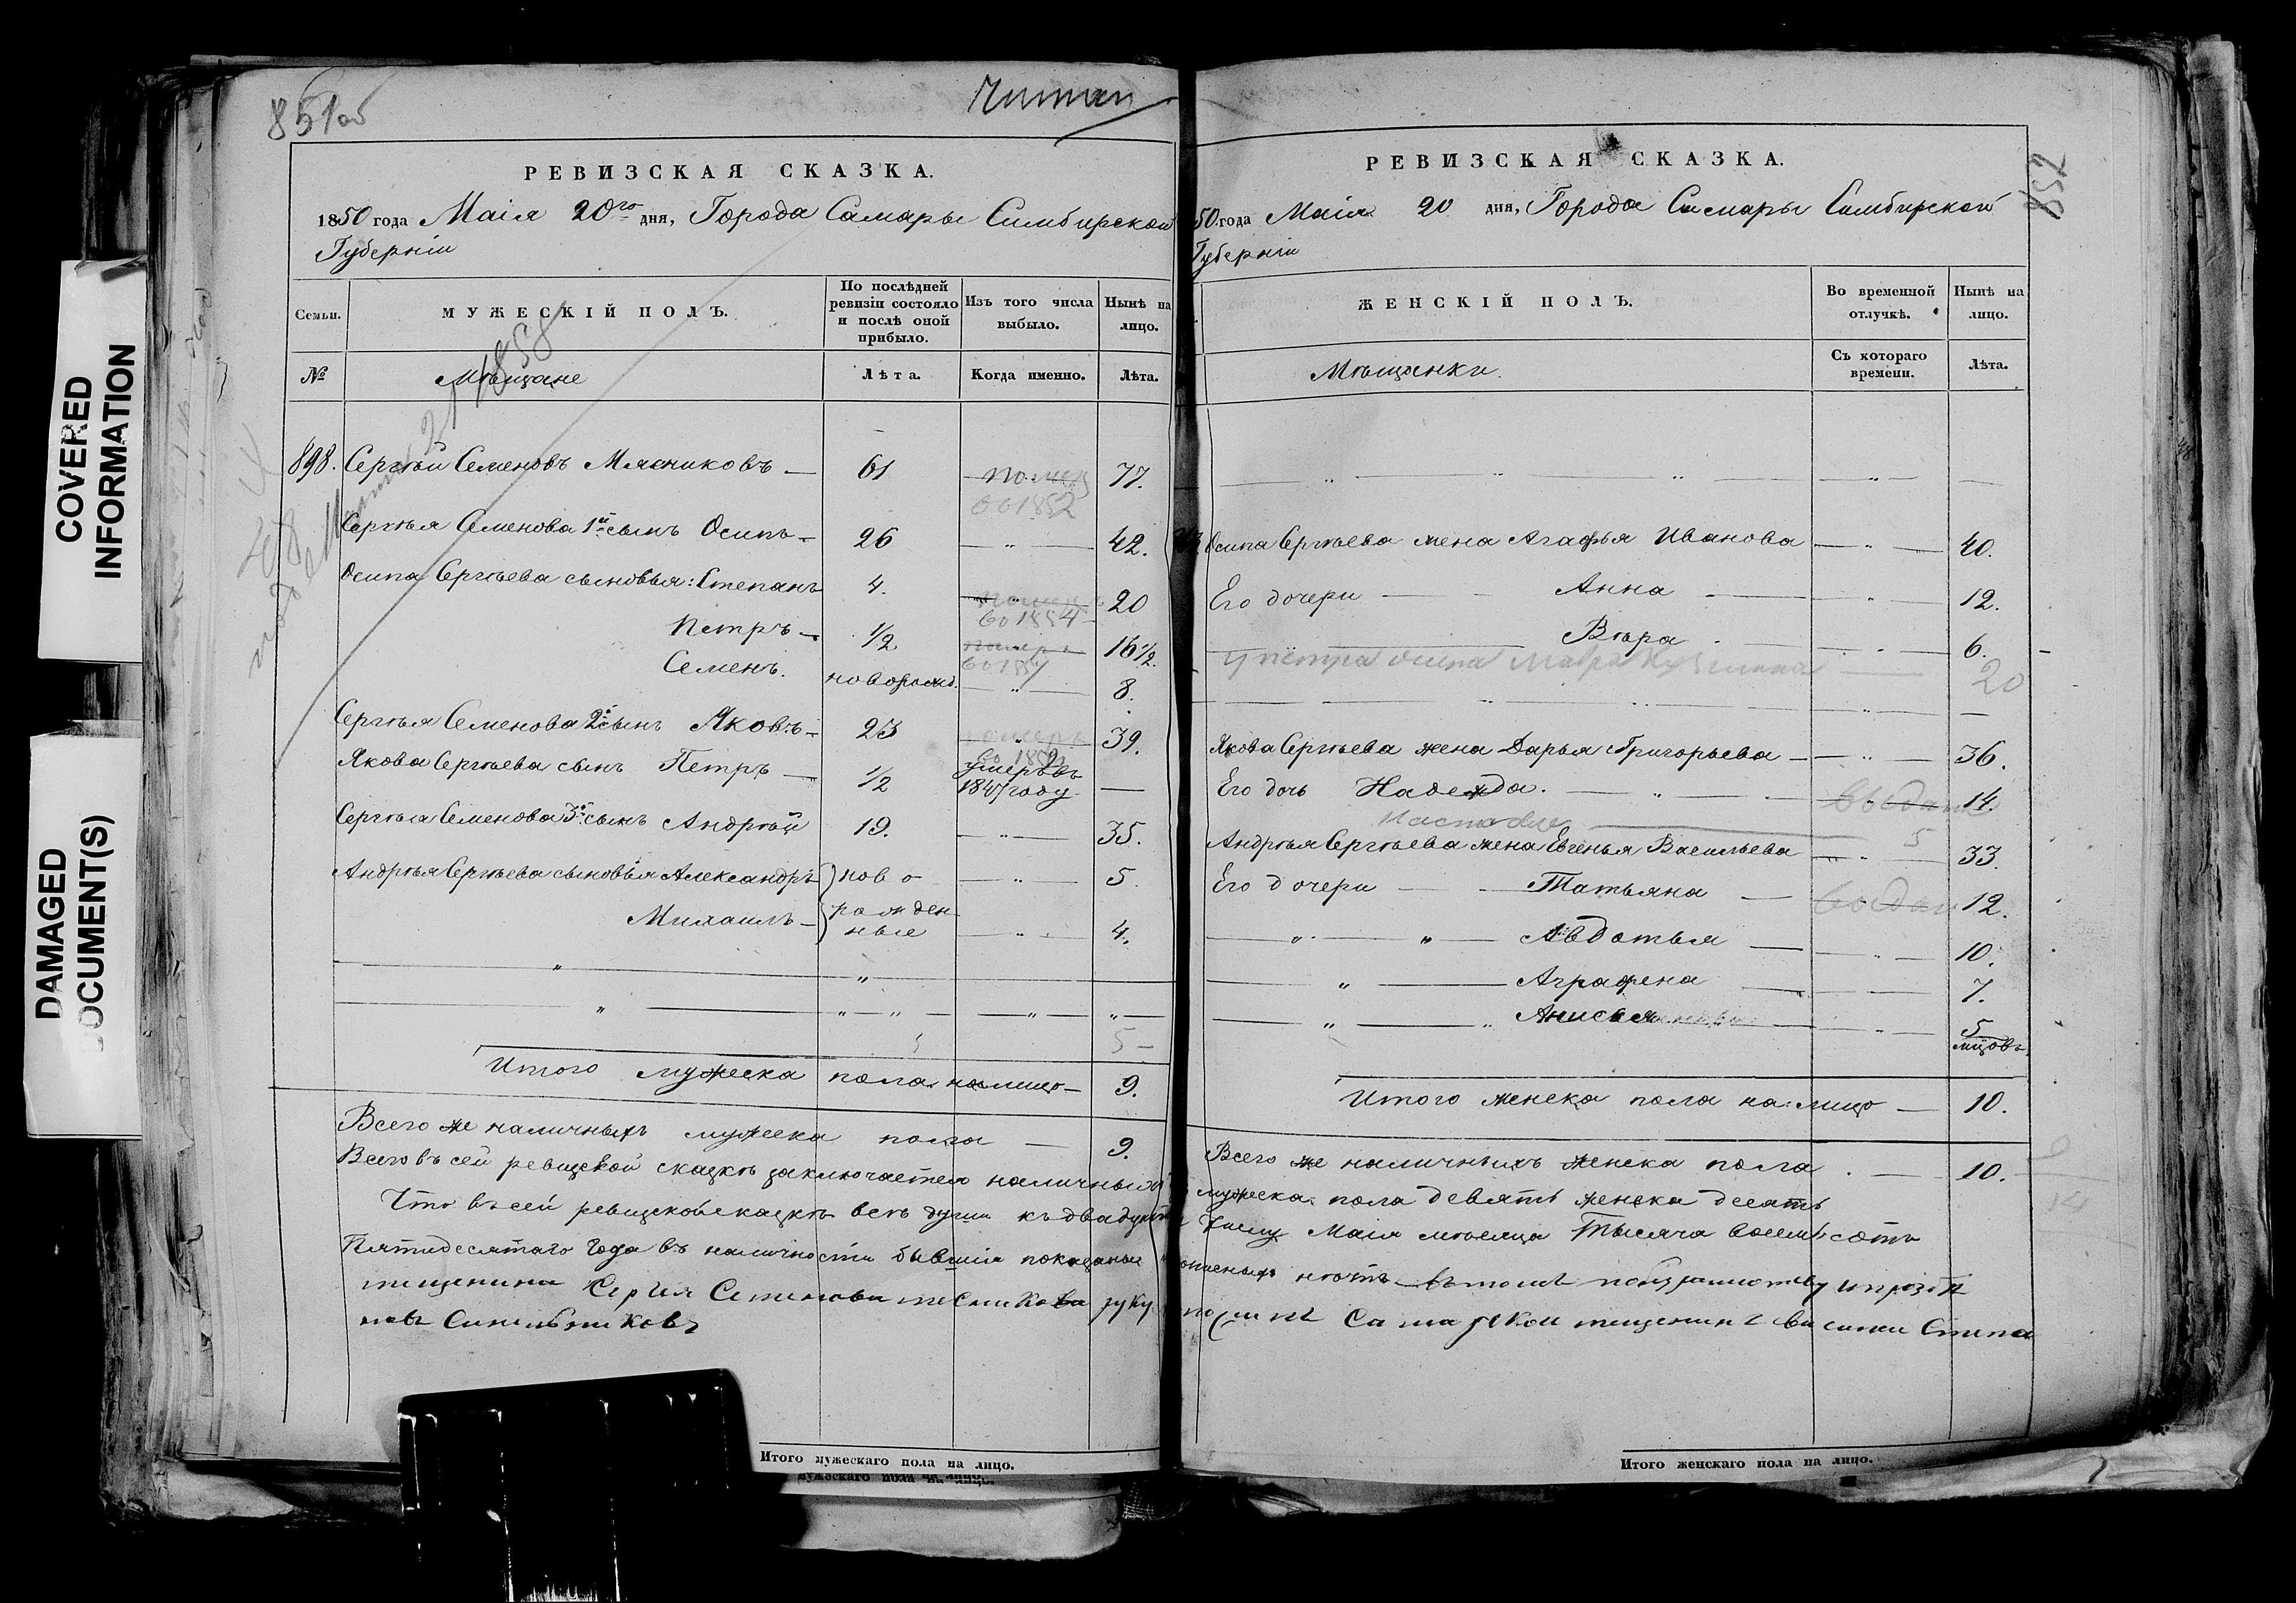 851 об
Читан
РЕВИЗСКАЯ СКАЗКА.
1850 года Маія 20го дня, Города Самары Симбирской
Губерніи
Семьи.
МУЖЕСКІЙ ПОЛЪ.
По послѣдней ревизіи состояло и послѣ оной прибыло.
Изъ того числа выбыло.
Нынѣ на лицо.
№
Мѣщане
Лѣта.
Когда именно.
Лѣта.
1858
898. Сергѣй Семеновъ Мясниковъ — 61 помер во 1852 77.
Сергѣя Семенова 1й сынъ Осипъ — 26 — „ — 42.
Осипа Сергѣева сыновья: Степанъ 4. померъ во 1854 20
Петръ — 1/2 померъ во 185 16 1/2.
Семенъ. новорожд. — „ — 8.
Сергѣя Семенова 2й сынъ Яковъ — 23 померъ во 185 39.
Якова Сергѣева сынъ Петръ — 1/2 умеръ въ 184 году —
Сергѣя Семенова 3й сынъ Андрѣй 19. — „ — 35.
Андрѣя Сергѣева сыновья Александръ ново — „ — 5.
Михаилъ — рожденные — „ — 4.
5 —
Итого мужеска пола налицо — 9.
Всего же наличныхъ мужеска пола — 9.
Всего въ сей ревизской сказкѣ заключается наличныхъ
Что въ сей ревизской сказкѣ всѣ души къ двадцатому
Пятидесятаго года въ наличности бывшія показаны и
мещенина Сергия Семенова Месникова руку
новъ Синельниковъ
Итого мужескаго пола на лицо.
мужескаго пола на лицо.
852
РЕВИЗСКАЯ СКАЗКА.
50 года Маія 20 дня, Города Самары Симбирской
Губерніи
ЖЕНСКІЙ ПОЛЪ.
Во временной отлучкѣ.
Нынѣ на лицо.
Мѣщанки.
Съ котораго времени.
Лѣта.
Осипа Сергѣева жена Агафья Иванова — „ — 40.
Его дочери — Анна — „ — 12.
Вѣра — „ — 6.
у петра Осипа Мавра Кузмина 20
Якова Сергѣева жена Дарья Григорьева — „ — 36.
Его дочь Надежда. — „ — выдан 14.
Настасья 5
Андрѣя Сергѣева жена Евгенья Васильева — „ — 33.
Его дочери — Татьяна — выдан 12.
„ — „ — Авдотья — „ — 10.
„ — Аграфена — 7.
„ — „ Анисья — „ — 5
Итого женска пола на лицо — 10.
Всего же наличныхъ женска пола — 10.
мужеска пола девять женска десять
числу Маія мѣсяца Тысяча восемьсотъ
нѣтъ въ томъ
Самарскои мещенинъ Степа
Итого женскаго пола на лицо.
COVERED INFORMATION
DAMAGED DOCUMENT(S)